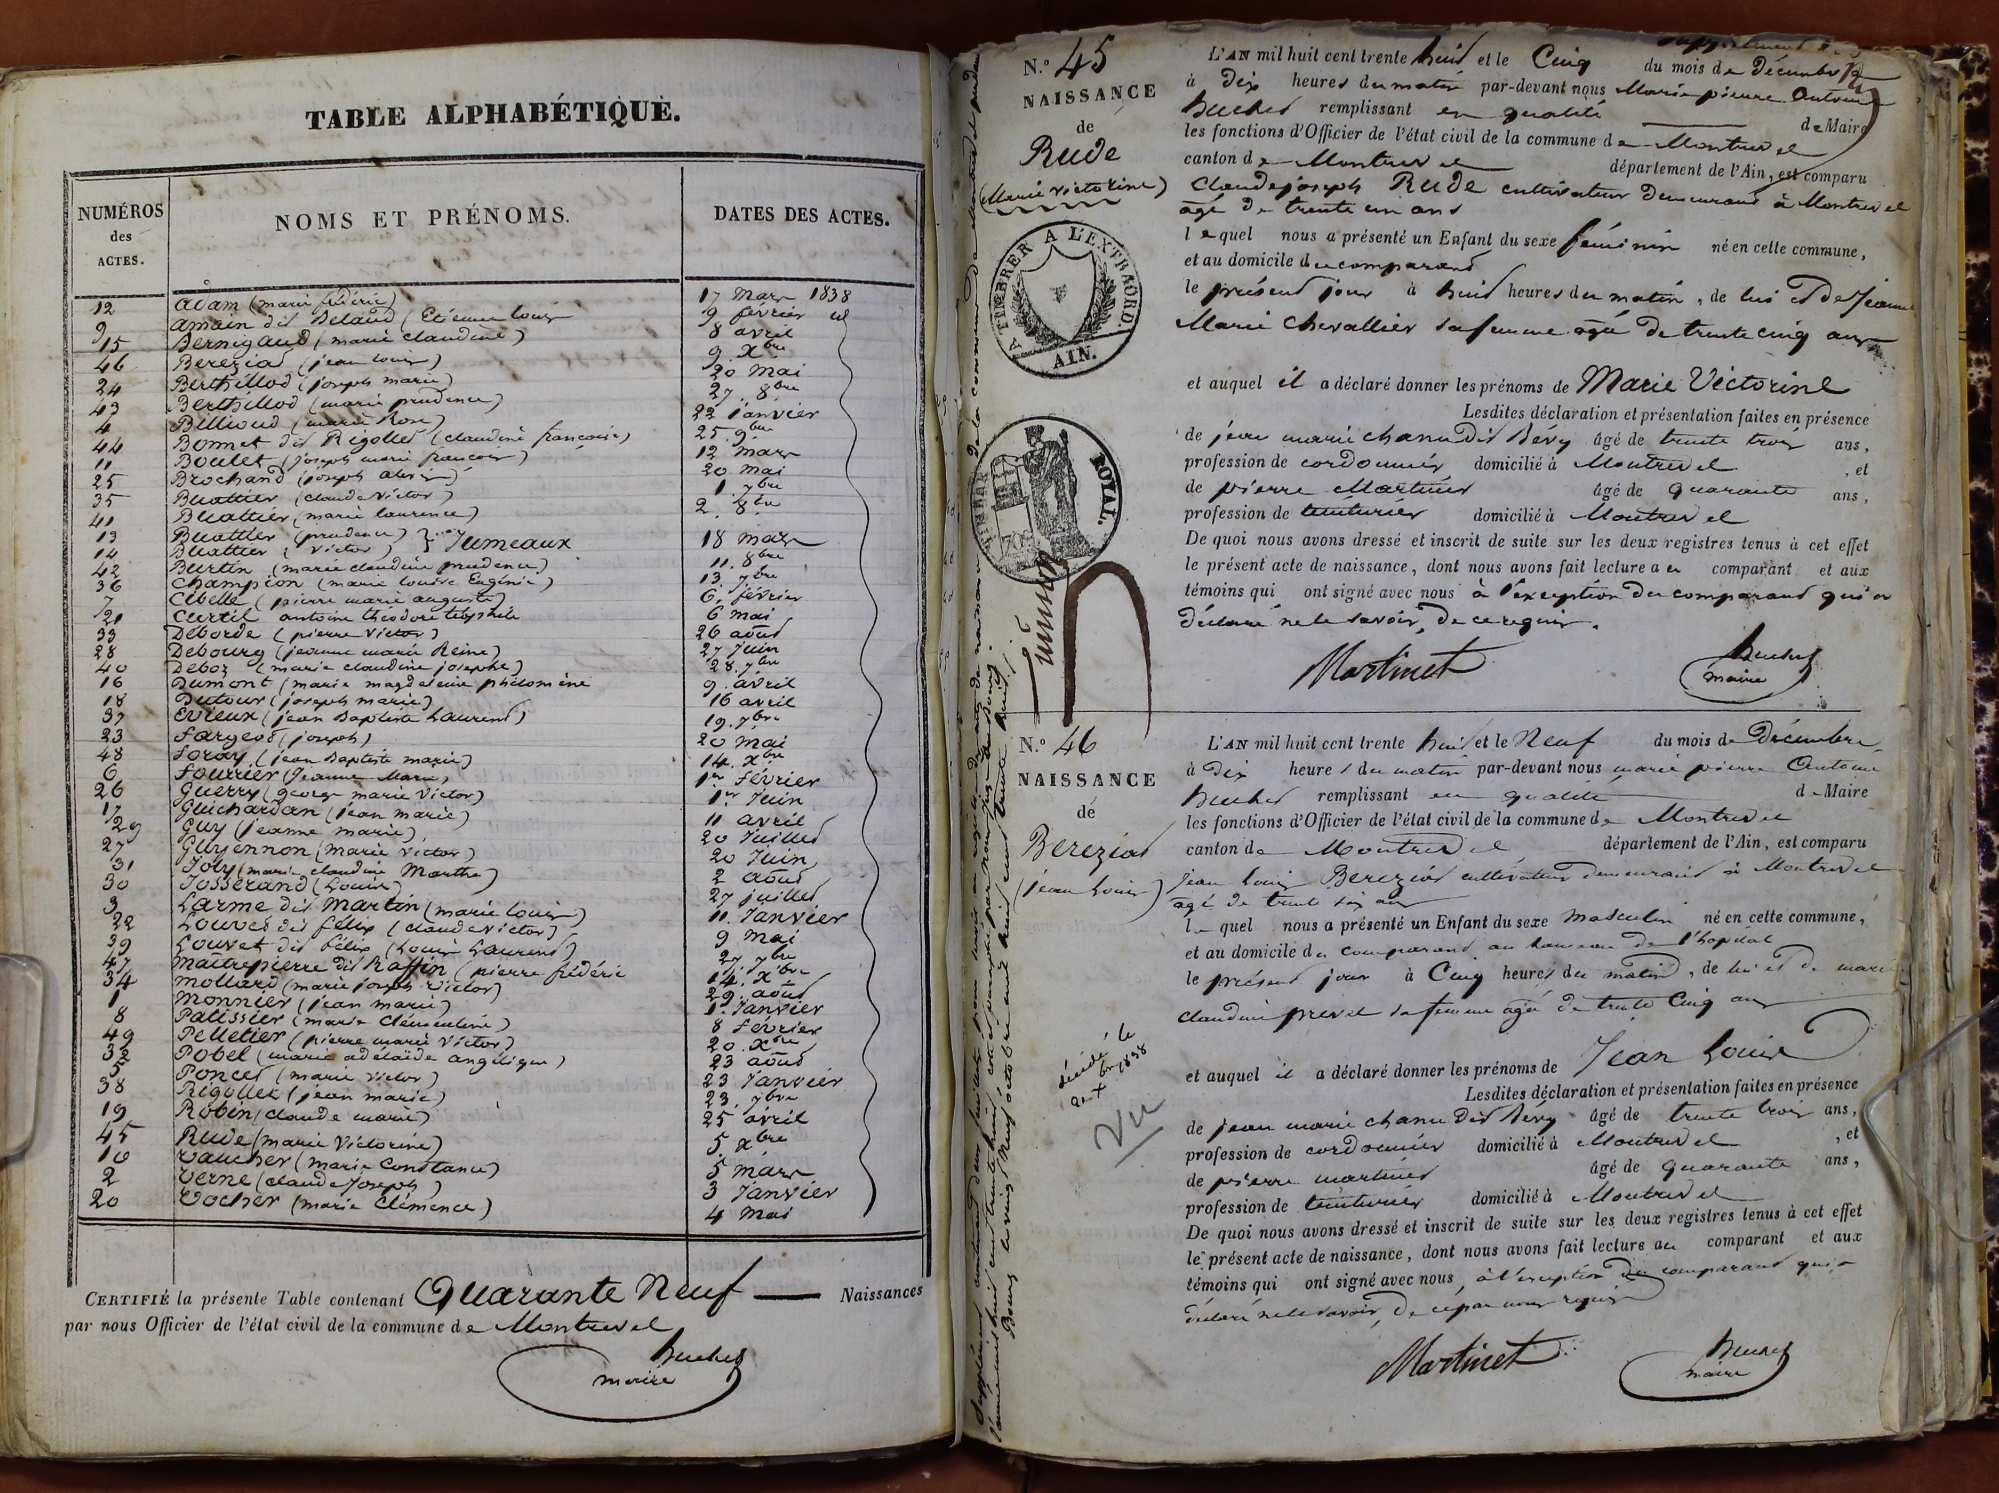 TABLE ALPHABÉTIQUE.
NUMÉROS des ACTES.
NOMS ET PRÉNOMS.
DATES DES ACTES.
12 Adam (marie frédéric) 17 Mars 1838
9 Amain dit Belaud (Etienne Louis 9 février
15 Bernigaud (marie claudine) 8 avril
46 Bereziad (jean louis) 9. Xbre
24 Berthillod (joseph marie) 20 mai
43 Berthillod (marie prudence) 27. 8bre
4 Billioud (marie Rose) 22 janvier
44 Bonnet dit Rigollet (claudine françoise) 25. 9bre
11 Boulet (joseph marie françois) 12 mars
25 Brochand (joseph) 20 mai
35 Buattier (claude Victor) 1. 7bre
41 Buattier (marie laurence) 2. 8bre
13 Buattier (prudence) } Jumeaux
14 Buattier (Victor) 18 mars
42 Burtin (marie claudine prudence) 11. 8bre
36 Champion (marie louise Eugénie) 13. 7bre
7 Cibelle (pierre marie auguste) 6. février
21 Curtil antoine théodore 6 mai
33 Deborde (pierre Victor) 26 août
28 Debourg (jeanne marie Reine) 27 Juin
40 Deboz (marie claudine josephe) 28. 7bre
16 Dumont (marie magdeleine philomène 9. avril
18 Dutour (joseph marie) 16 avril
37 Evieux (jean Baptiste Laurent) 19. 7bre
23 Fargeot (joseph) 20 mai
48 Foray (jean Baptiste marie) 14. Xbre
6 Fourrier (Jeanne Marie) 1er février
26 Guerry (george marie Victor) 1er Juin
17 Guichardan (jean marie) 11 avril
29 Guy (jeanne marie) 20 Juillet
27 Guyennon (marie victor) 20 Juin
31 Joly (marie claudine Marthe) 2 août
30 Josserand (Louise) 27 juillet
3 Larme dit Martin (marie louise) 11. Janvier
22 Louvet dit félix (claude victor) 9 Mai
39 Louvet dit félix (Louis Laurent) 27. 7bre
47 Maîtrepierre dit Raffin (pierre frédéric 14. Xbre
34 Mollard (marie joseph victor) 29. août
1 Monnier (jean marie) 1er Janvier
8 Patissier (marie Clémentine) 8 février
49 Pelletier (pierre marie Victor) 20. Xbre
32 Pobel (marie adélaïde angélique) 23 août
5 Poncet (marie victor) 23 Janvier
38 Rigollet (jean marie) 23. 7bre
19 Robin (claude marie) 25 avril
45 Rude (marie Victorine) 5. Xbre
10 Vaucher (marie Constance) 5 mars
2 Verne (claude Joseph) 3 Janvier
20 Vocher (marie Clémence) 4 mai
CERTIFIÉ la présente Table contenant Quarante Neuf Naissances
par nous Officier de l'état civil de la commune de Montrevel
Buchet
maire
N.° 45
NAISSANCE
de
Rude
(Marie Victorine)
A TIMBRER A L'EXTRAORD.
AIN.
TIMBRE ROYAL.
70
L'AN mil huit cent trente huit et le Cinq du mois de Décembre
à Dix heures du matin par-devant nous Marie pierre Antoine
Buchet remplissant en qualité de Maire
les fonctions d'Officier de l'état civil de la commune de Montrevel
canton de Montrevel département de l'Ain, est comparu
Claude joseph RUDE cultivateur demeurant à Montrevel
âgé de trente un ans
lequel nous a présenté un Enfant du sexe féminin né en cette commune,
et au domicile du comparant
le présent jour à huit heures du matin, de lui et de Jeanne
Marie Chevallier sa femme agée de trente cinq ans
et auquel il a déclaré donner les prénoms de Marie Victorine
Lesdites déclaration et présentation faites en présence
de jean marie chanu dit Bévy âgé de trente trois ans,
profession de cordonnier domicilié à Montrevel, et
de pierre Martinet âgé de quarante ans,
profession de teinturier domicilié à Montrevel
De quoi nous avons dressé et inscrit de suite sur les deux registres tenus à cet effet
le présent acte de naissance, dont nous avons fait lecture au comparant et aux
témoins qui ont signé avec nous à l'exception du comparant qui a
déclaré ne le savoir, de ce requis.
Martinet
Buchet
maire
N.° 46
NAISSANCE
de
Bereziat
(jean Louis)
décédé le
Xbre 1838
Vu
L'AN mil huit cent trente huit et le Neuf du mois de Décembre,
à Dix heures du matin par-devant nous marie pierre Antoine
Buchet remplissant en qualité de Maire
les fonctions d'Officier de l'état civil de la commune de Montrevel
canton de Montrevel département de l'Ain, est comparu
jean Louis Bereziat cultivateur demeurant à Montrevel
âgé de trente six ans
lequel nous a présenté un Enfant du sexe masculin né en cette commune,
et au domicile du comparant au hameau de l'hopital
le présent jour à Cinq heures du matin, de lui et de marie
claudine prevel sa femme agée de trente Cinq ans
et auquel il a déclaré donner les prénoms de Jean Louis
Lesdites déclaration et présentation faites en présence
de jean marie chanu dit Bévy âgé de trente trois ans,
profession de cordonnier domicilié à Montrevel, et
de pierre martinet âgé de quarante ans,
profession de teinturier domicilié à Montrevel
De quoi nous avons dressé et inscrit de suite sur les deux registres tenus à cet effet
le présent acte de naissance, dont nous avons fait lecture au comparant et aux
témoins qui ont signé avec nous, à l'exception du comparant qui a
déclaré ne le savoir, de ce par nous requis
Martinet
Buchet
maire